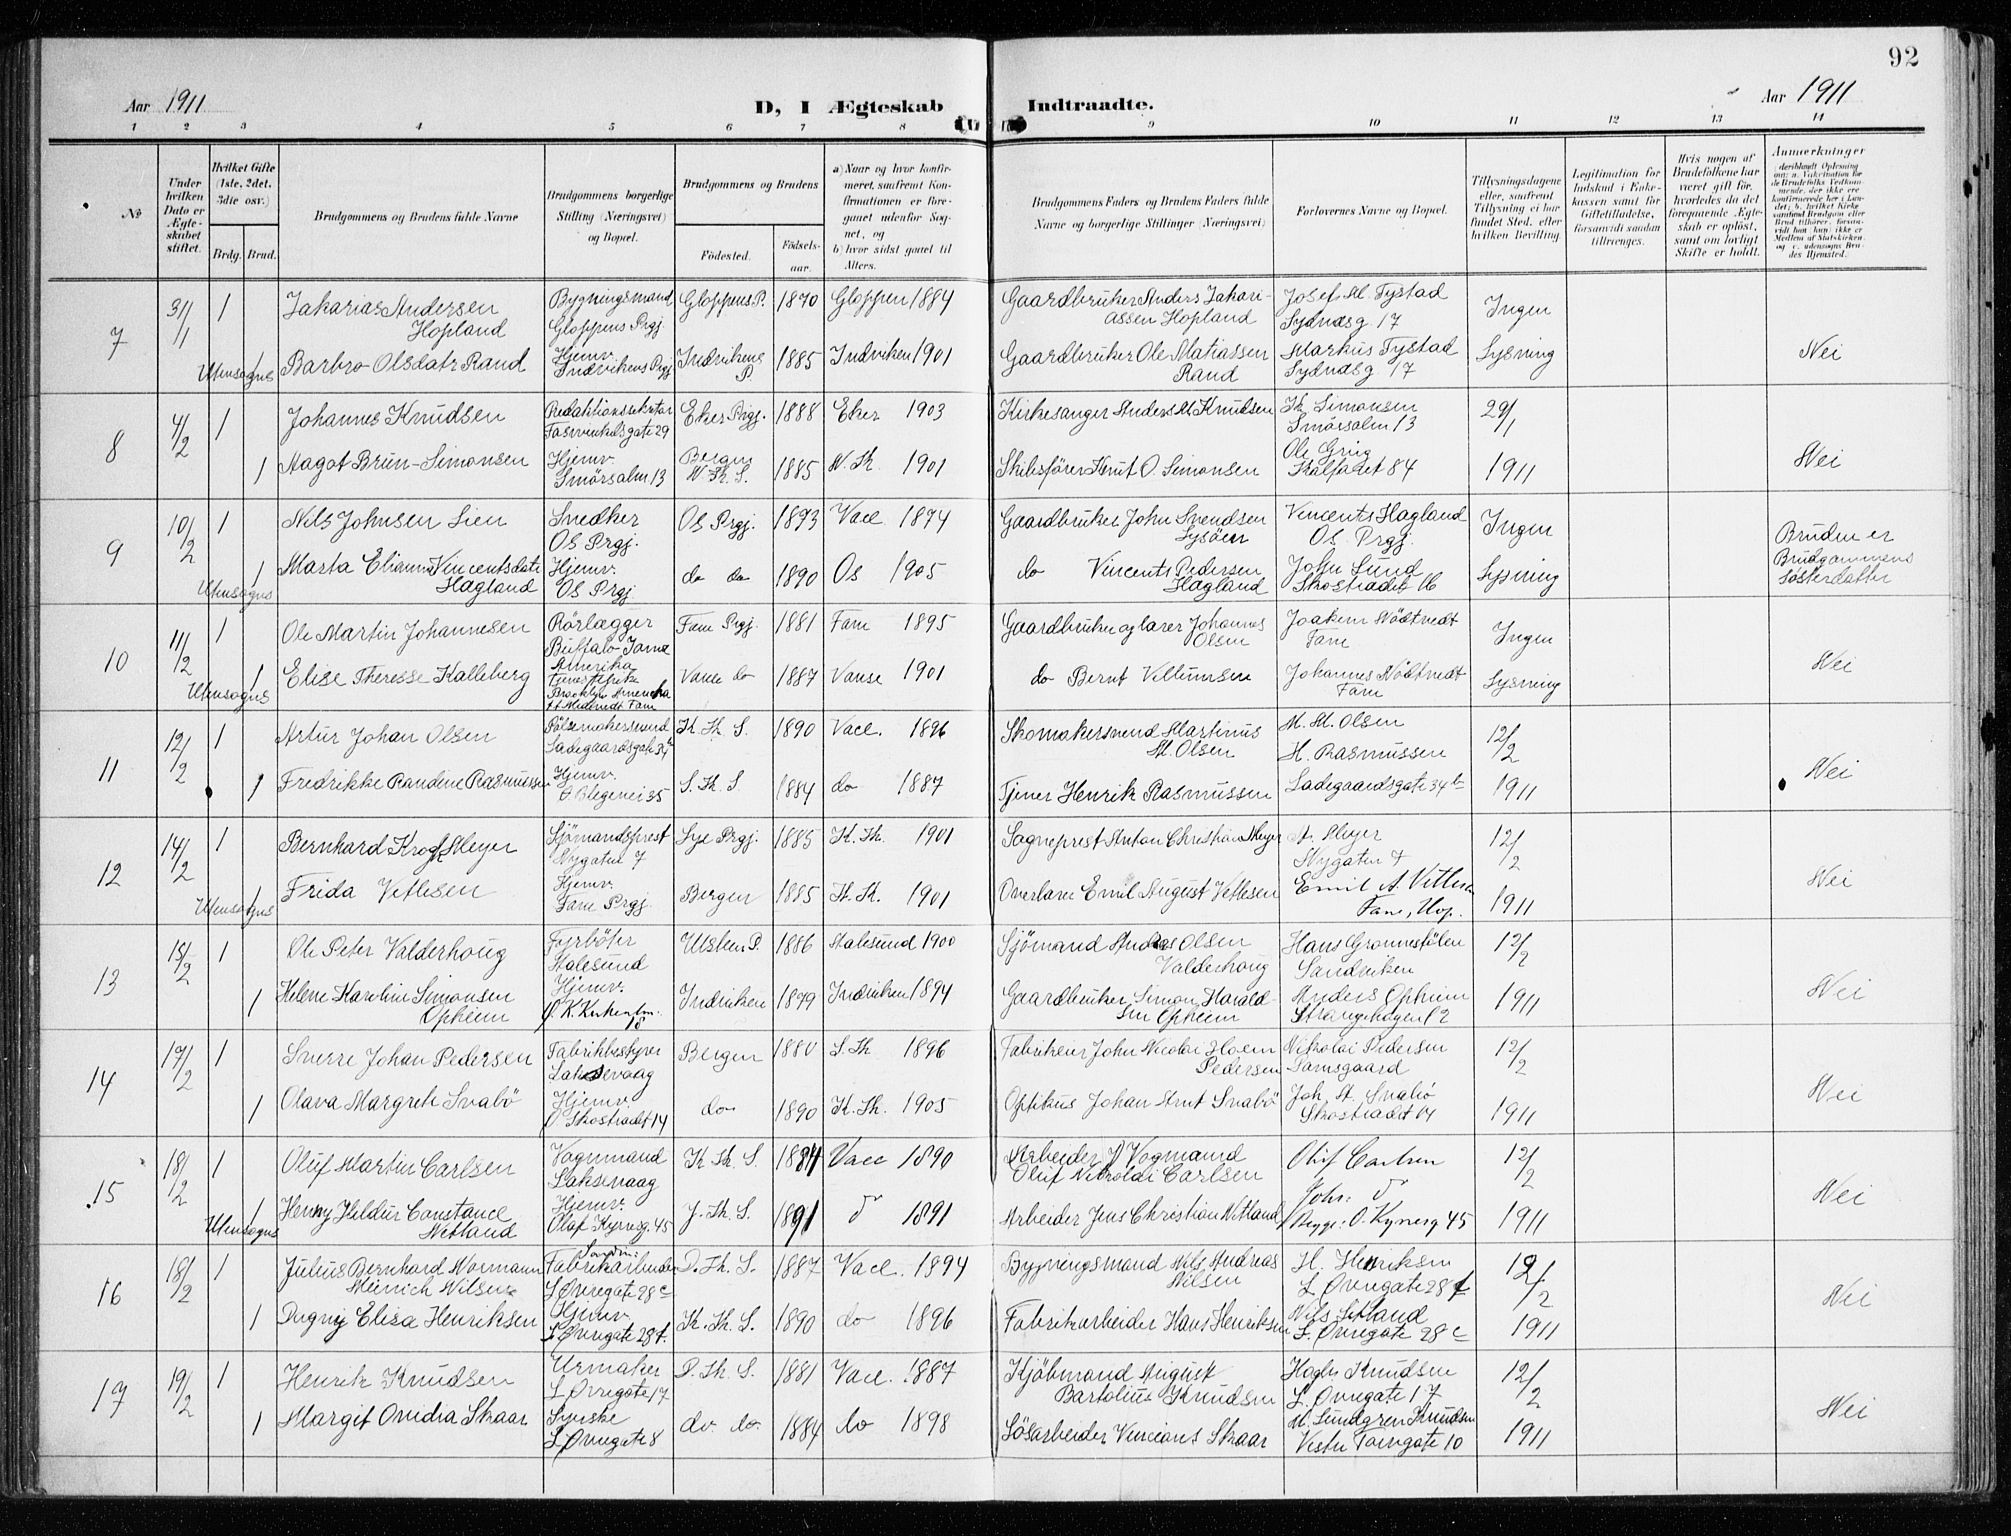 92
Aar 1911
D, I Ægteskab Indtraadte.
Aar 1911
1 2 3 4 5 6 7 8 9 10 11 12 13 14
No
Under hvilken Dato er Ægteskabet stiftet.
Hvilket Gifte (1ste, 2det, 3die osv.)
Brdg. Brud.
Brudgommens og Brudens fulde Navne
Brudgommens borgerlige Stilling (Næringsvei) og Bopæl.
Brudgommens og Brudens
Fødested.
Fødselsaar.
a) Naar og hvor konfirmeret, saafremt Konfirmationen er foregaaet udenfor Sognet, og
b) hvor sidst gaaet til Alters.
Brudgommens Faders og Brudens Faders fulde Navne og borgerlige Stillinger (Næringsvei)
Forlovernes Navne og Bopæl.
Tillysningsdagene eller, saafremt Tillysning ei har fundet Sted, efter hvilken Bevilling.
Legitimation for Indskud i Enkekassen samt for Giftetilladelse, forsaavidt saadan tiltrænges.
Hvis nogen af Brudefolkene har været gift før, hvorledes da det foregaaende Ægteskab er opløst, samt om lovligt Skifte er holdt.
Anmærkninger
7 31/1 1 Zakarias Andersen Hopland Bygningsmand Gloppens Prgj Gloppens P. 1870 Gloppen 1884 Gaardbruker Anders Zakariassen Hopland Josef M. Tystad Sydnæsg 17 Ingen
Utensogns 1 Barbro Olsdatr Rand Hjemv. Indvikens Prgj Indvikens P. 1885 Indviken 1901 Gaardbruker Ole Matiassen Rand Markus Tystad Sydnæsg 17 Lysning Nei
8 4/2 1 Johannes Knudsen Redaktionssekretær Fosswinkelsgate 29 Eker Prgj. 1888 Eker 1903 Kirkesanger Anders M. Knudsen Th. Simonsen Smörsalm 13 29/1
1 Magot Brun-Simonsen Hjemv. Smörsalm 13 Bergen N. K. S. 1885 N. K. 1901 Skibsfører Knut O. Simonsen Ole Grieg Kalfaret 84 1911 Nei
9 10/2 1 Nils Johnsen Lien Snedker Os Prgj. Os Prgj. 1873 Vacc 1874 Gaardbruker John Svendsen Lysöen Vincents Hagland Os Prgj. Ingen
Utensogns 1 Marta Elianna Vincentsdatr Hagland Hjemv. Os Prgj do do 1890 Os 1905 do Vincents Pedersen Hagland John Lund Skostrædet 16 Lysning Bruden er Brudgommens Søsterdatter
10 11/2 1 Ole Martin Johannesen Rörlægger Buffalo Amerika Fane Prgj. 1881 Fane 1895 Gaardbruker og lærer Johannes Olsen Joakim Nödtvedt Fane Ingen
Utensogns 1 Elise Therese Kalleberg Tjenestepike Brooklyn Amerika Fane Vanse do 1887 Vanse 1901 do Bernt Villumsen Johannes Nödtvedt Fane Lysning Nei
11 12/2 1 Artur Johan Olsen Pölsemakersvend Ladegaardsgate 34 K. K. S. 1890 Vacc. 1896 Skomakersvend Martinus M. Olsen M. M. Olsen 12/2
1 Fredrikke Randene Rasmussen Hjemv. 35 S. K. S. 1884 do 1887 Tjener Henrik Rasmussen H. Rasmussen Ladegaardsgate 34 b 1911 Nei
12 14/2 1 Bernhard Krog Meyer Sjömandsprest Nygaten 7 Lye Prgj. 1885 K. K. 1901 Sogneprest Anton Christian Meyer A. Meyer Nygaten 7 12/2
Utensogns 1 Frida Vetlesen Hjemv. Fane Prgj Bergen 1885 K. K. 1901 Overlærer Emil August Vetlesen Emil A. Vetlesen Fane, Hop. 1911 Nei
13 15/2 1 Ole Peter Valderhoug Fyrböter Aalesund Ulstens P. 1886 Aalesund 1900 Sjømand Andreas Olsen Valderhoug Hans Grønnestölen Sandviken 12/2
1 Helene Karoline Simonsen Opheim Hjemv. Indviken 1879 Indviken 1894 Gaardbruker Simon Haraldsen Opheim Anders Opheim Strangehagen 12 1911 Nei
14 17/2 1 Sverre Johan Pedersen Fabrikbestyrer Laksevaag Bergen 1880 S. K. 1896 Fabrikeier John Nicolai Hoem Pedersen Nikolai Pedersen Damsgaard 12/2
1 Olava Margrete Svabö Hjemv. Ø Skostrædet 14 do 1890 K. K. 1905 Optikus Johan Arnt Svabö Joh. A. Svabö Skostrædet 14 1911 Nei
15 18/2 1 Oluf Martin Carlsen Vognmand Laksevaag K. K. S. 1884 Vacc 1890 Arbeider Vognmand Oluf Nikolai Carlsen Oluf Carlsen 12/2
Utensogns 1 Henny Hildur Constance Netland Hjemv. Olaf Kyrresg. 45 J. K. S. 1891 do 1891 Arbeider Jens Christian Netland Begge: O. Kyrresg 45 1911 Nei
16 18/2 1 Julius Bernhard Normann Meinich Nilsen Fabrikarbeider L Øvregate 28 c D. K. S. 1887 Vacc. 1894 Bygningsmand Nils Andreas Nilsen H. Henriksen L Øvregate 28 f 12/2
1 Dagny Elisa Henriksen Hjemv. L Øvregate 28 f. K. K. S. 1890 do 1896 Fabrikarbeider Hans Henriksen Nils Setland L. Øvregate 28 c 1911 Nei
17 19/2 1 Henrik Knudsen Urmaker L Øvregate 17 D. K. S. 1881 Vacc. 1887 Kjöbmand August Bartolius Knudsen Knudsen L. Øvregate 17 12/2
1 Margit Ovidia Skaar Syerske L Øvregate 8 do do 1884 do 1898 Løsarbeider Skaar M. Lundgren Knudsen Vestre Torvgate 10 1911 Nei